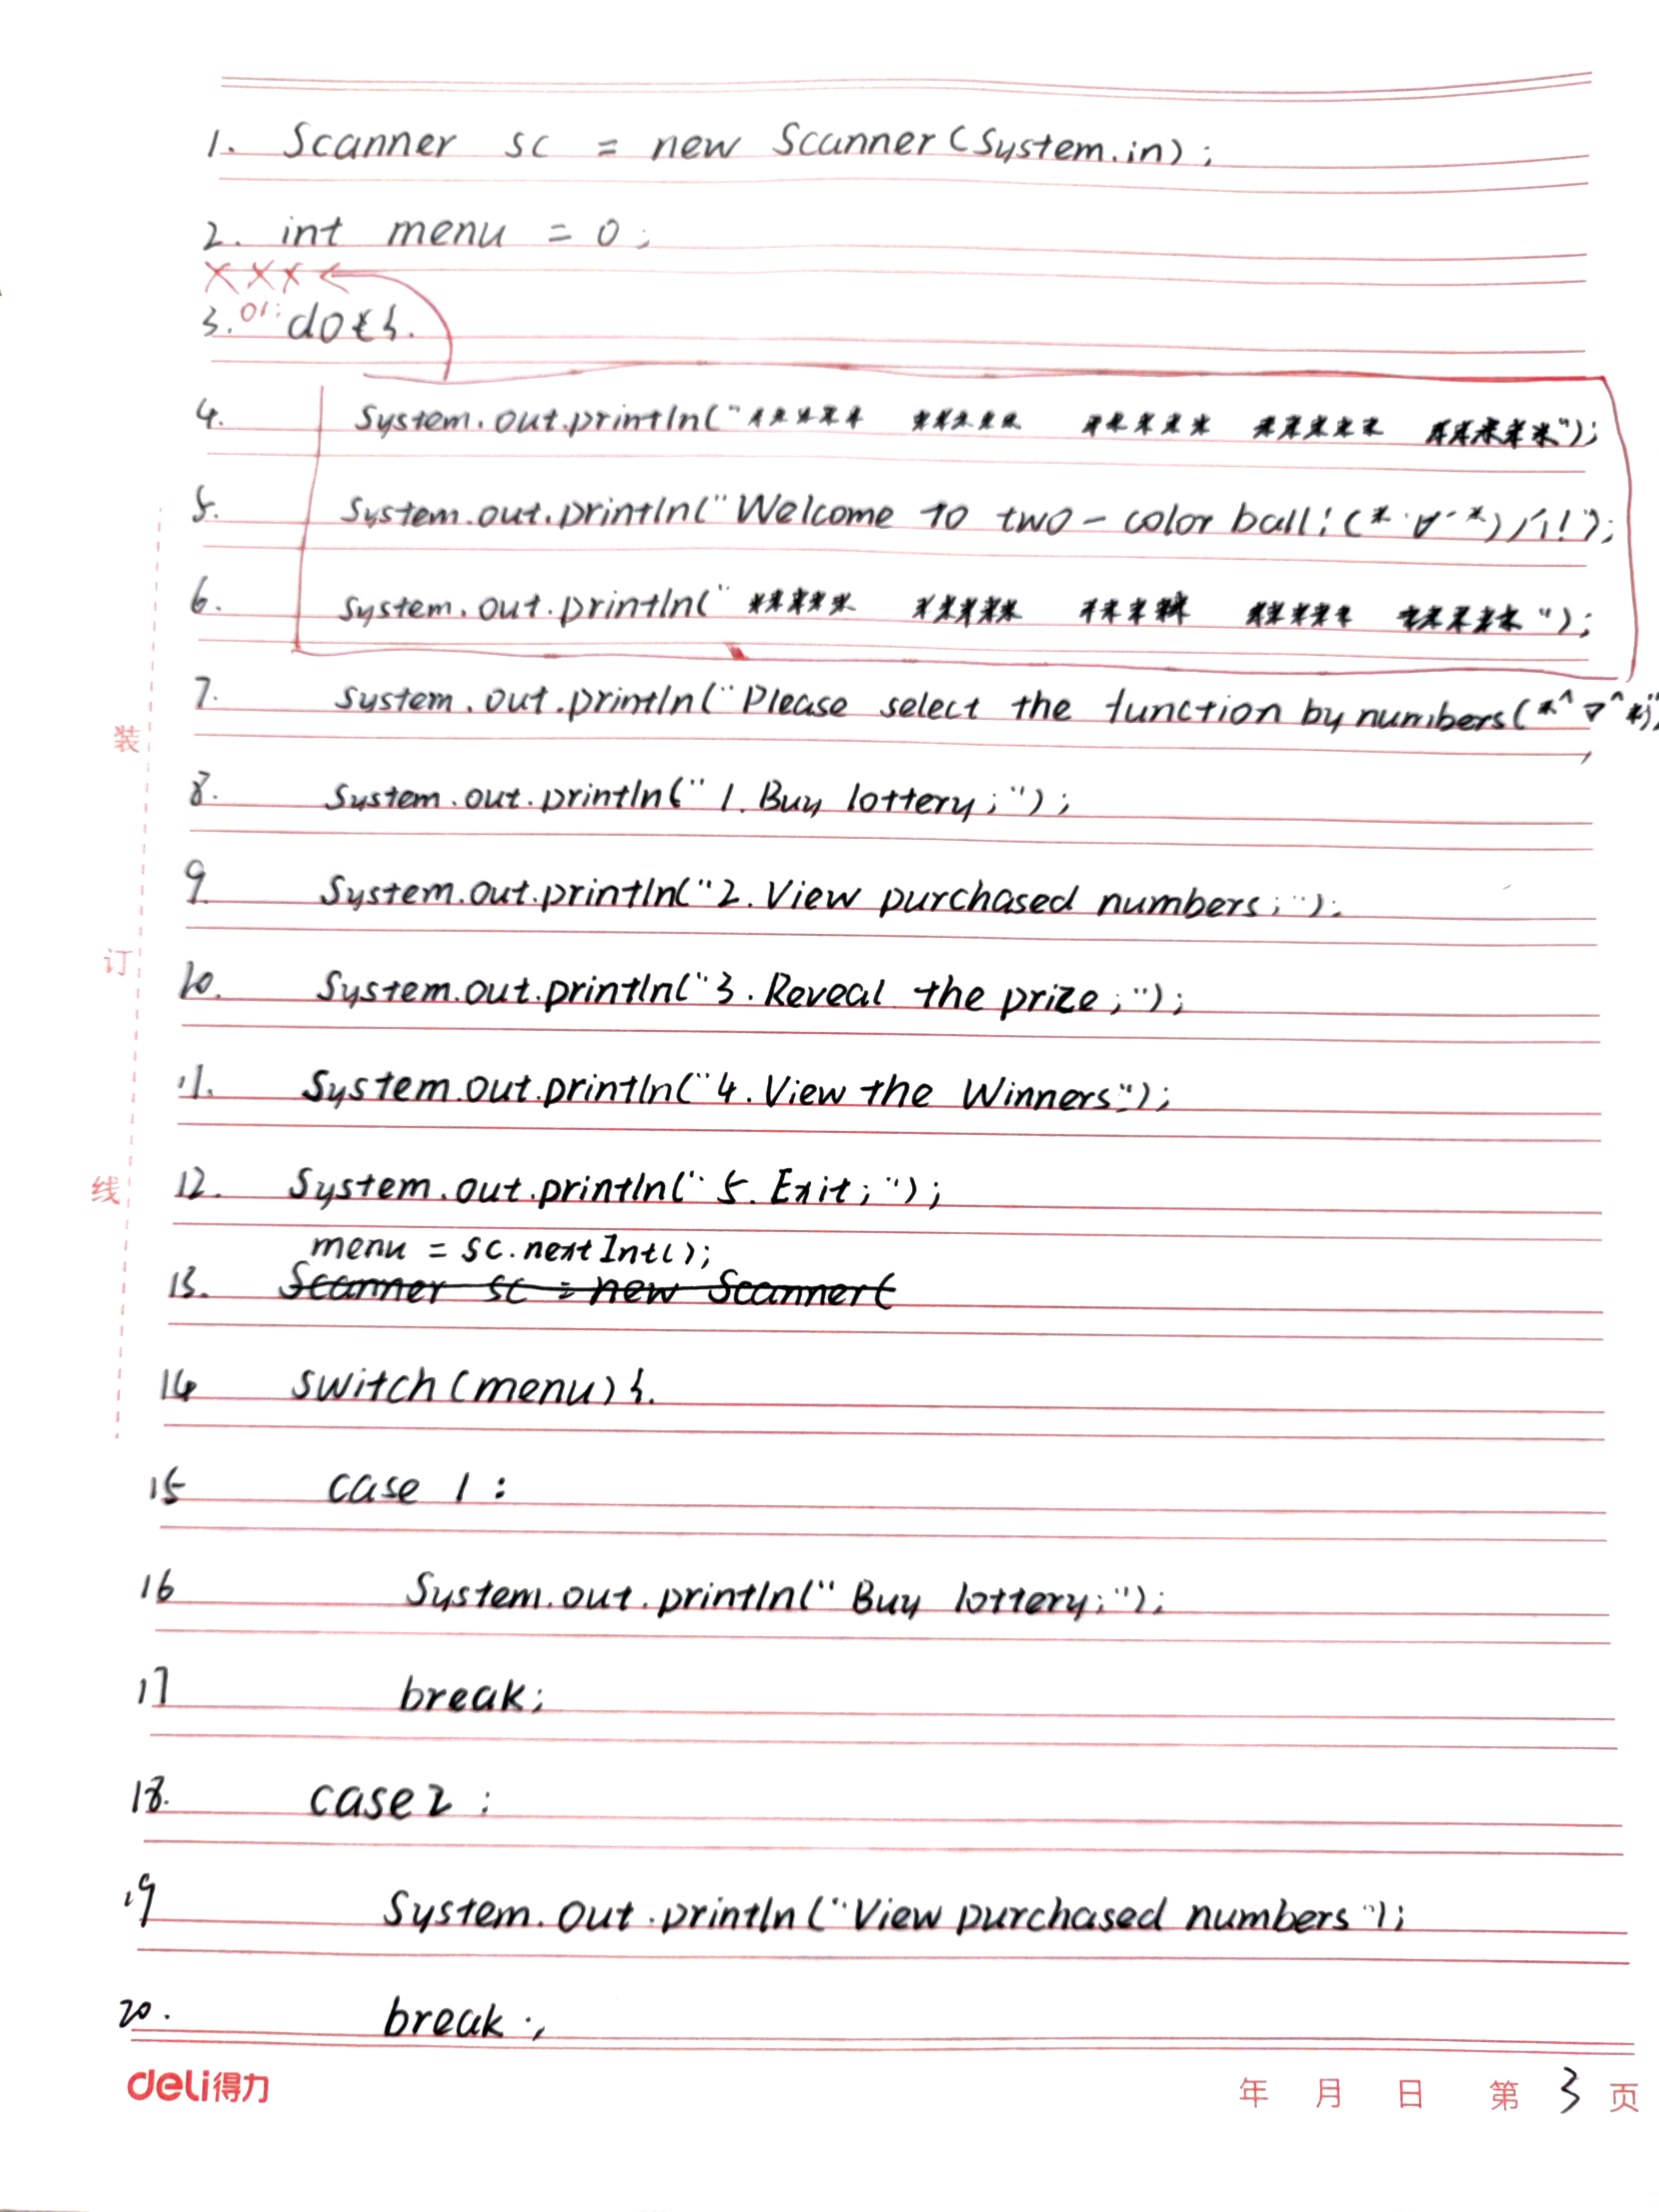 1. Scanner sc = new Scanner(System.in);
2. int menu = 0;
×××
3. or: do{
4. System.out.println("***** ***** ***** ***** *****");
5. System.out.println("Welcome To two-color ball!(*´∀`*)ﾉ!");
6. System.out.println("***** ***** ***** ***** *****");
7. System.out.println("Please select the function by numbers(*^▽^*)");
8. System.out.println("1.Buy lottery;");
9. System.out.println("2.View purchased numbers;");
10. System.out.println("3.Reveal the prize;");
11. System.out.println("4.View the Winners;");
12. System.out.println("5.Exit;");
menu = sc.nextInt();
13. Scanner sc = new Scanner(
14 switch(menu){
15 case 1:
16 System.out.println("Buy lottery;");
17 break;
18. case2:
19 System.out.println("View purchased numbers");
20. break;
装
订
线
deli得力 年 月 日 第 3 页